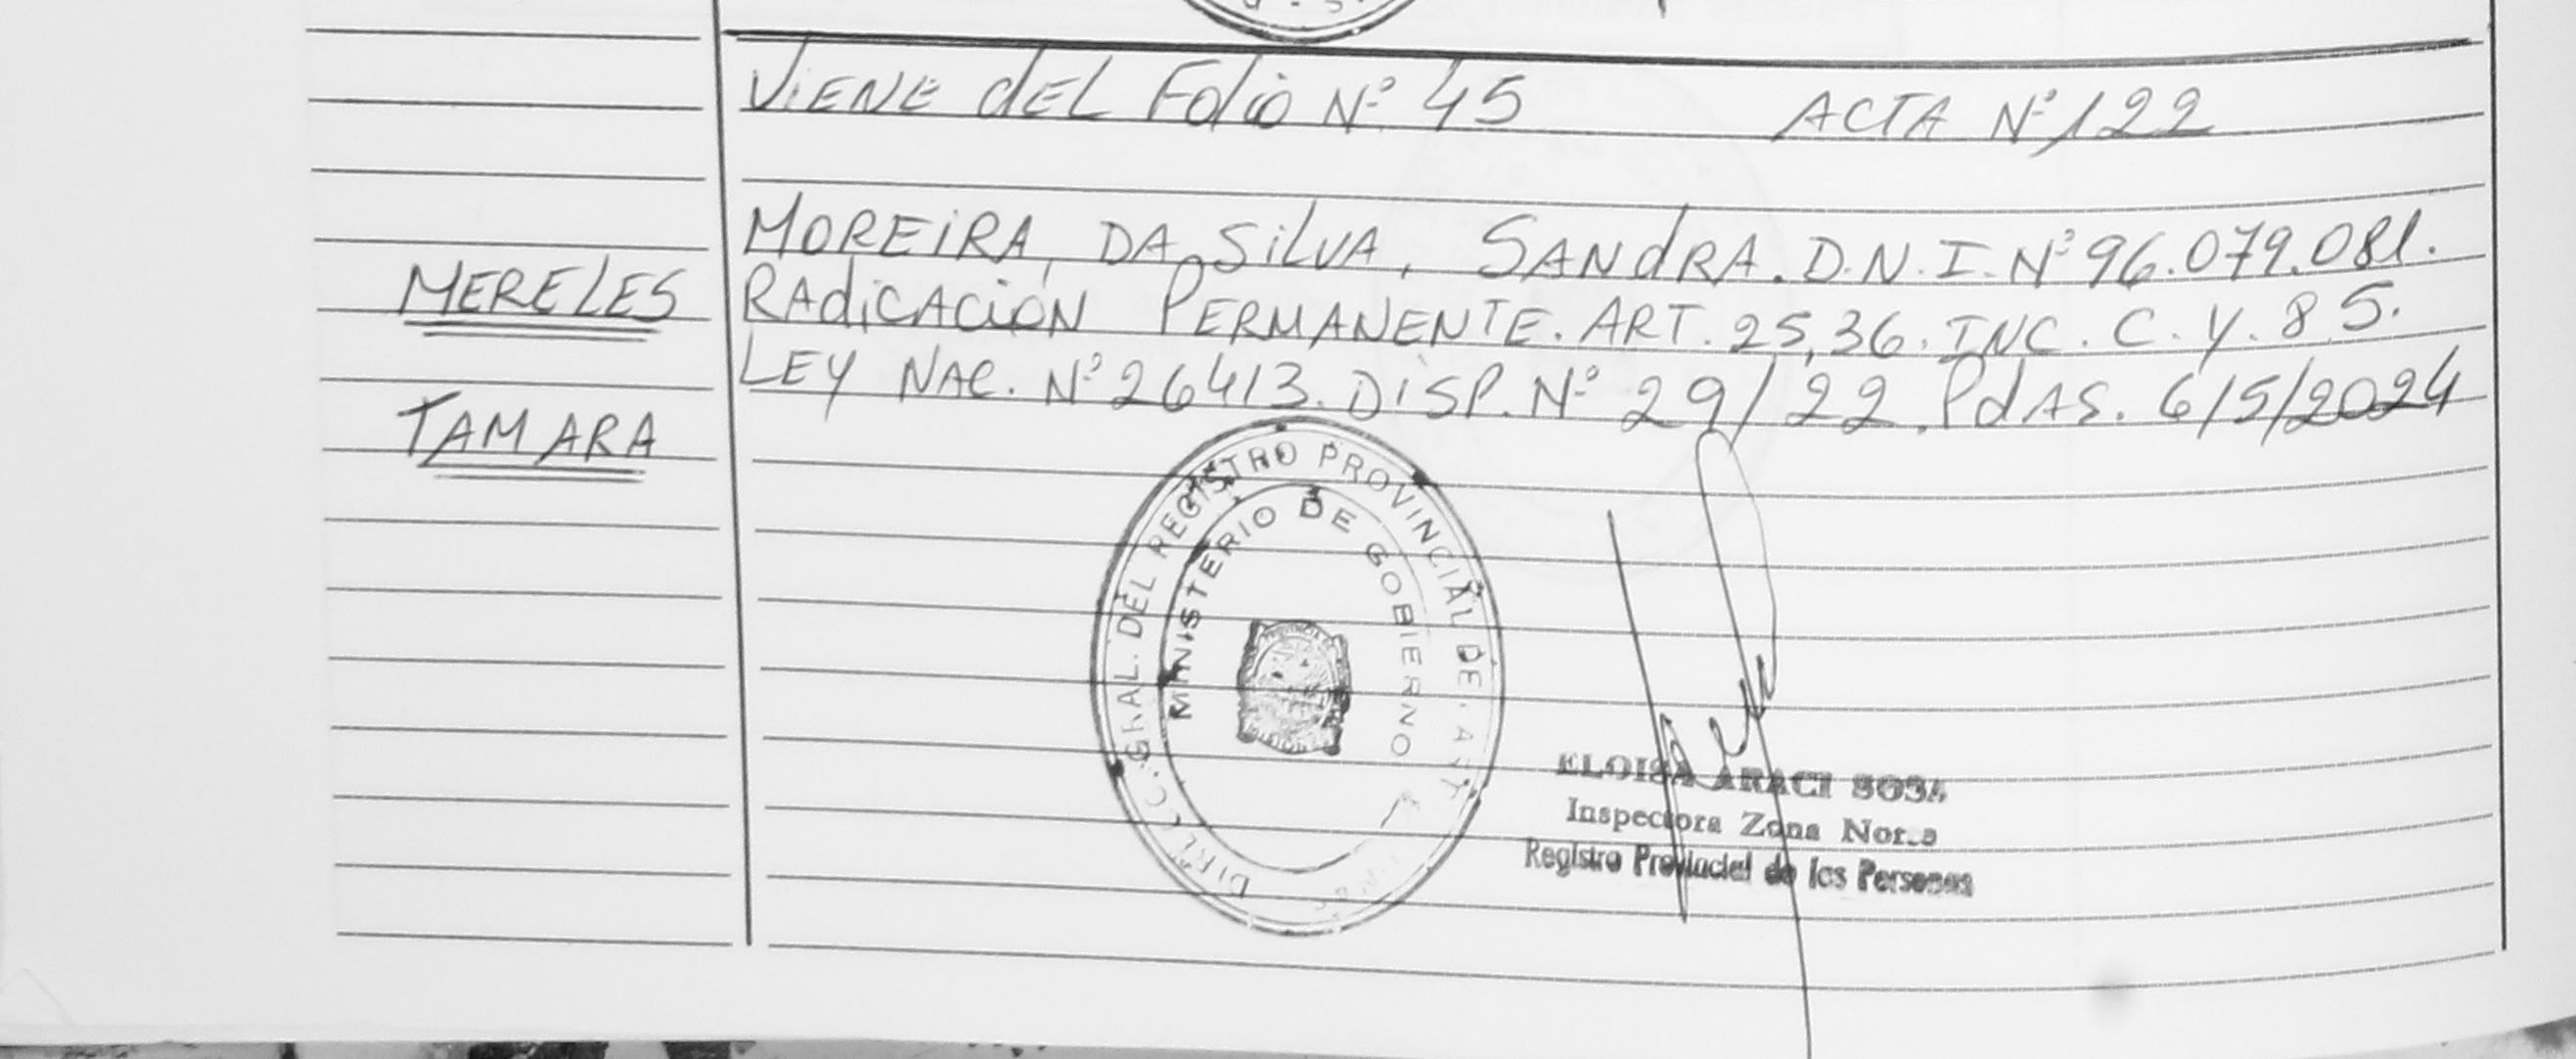 VIENE DEL Folio Nº 45 ACTA Nº 122
MOREIRA, DA SILVA, SANDRA. D.N.I. Nº 96.079.081.
MERELES
RADICACIÓN PERMANENTE. ART. 25,36. INC. C. Y. 85.
LEY NAC. Nº 26413. DISP. Nº 29/22. PdAS. 6/5/2024
TAMARA
DIRECC. GRAL. DEL REGISTRO PROVINCIAL DE
MINISTERIO DE GOBIERNO
ELOISA ARACI SOSA
Inspectora Zona Norte
Registro Provincial de las Personas